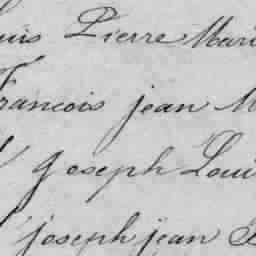 uis Pierre Mari
François jean M
Joseph Loui
joseph jean B